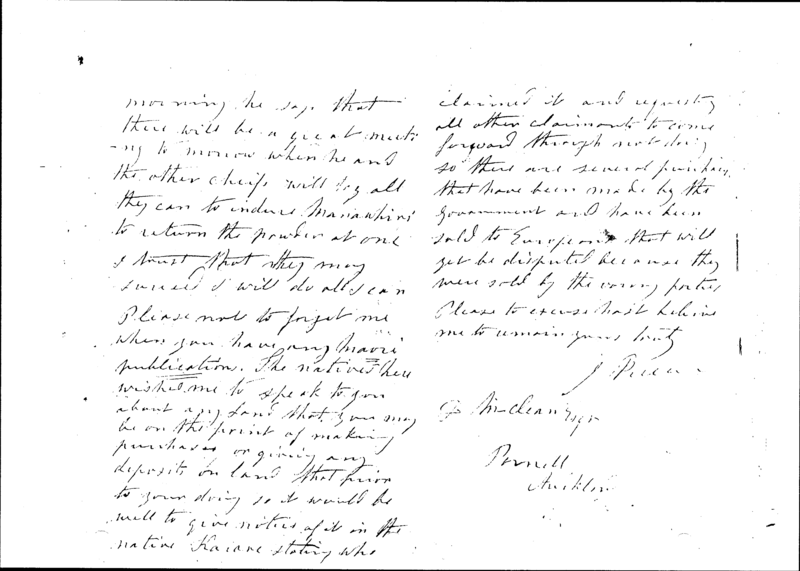 morning he says that
there will be a great meeti
-ng to morrow when he and
the other cheifs will try all
they can to induce Manawhiri
to return the powder at one
I trust that they may
succeed I will do all I can
Please not to forget me
when you have any maori
publications. The natives here
wished me to speak to you
about any land that you may
be on the point of making
purchases or giving any
deposits on land that prior
to your doing so it would be
well to give notice of it in the
native Karere stating who
claimed it and requesting
all other claimants to come
forward through not doing
so there are several purchases
that have been made by the
Government and have been
sold to Europeans that will
yet be disputed because they
were sold by the wrong parties
Please to excuse hast beleive
me to remain yours truly
J
McClean Esqr
Parnell
Auckland